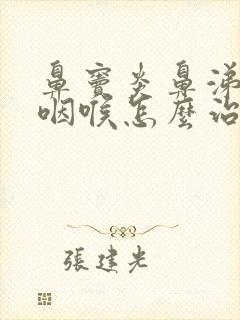 鼻竇炎鼻涕
咽喉怎麼治
張建光